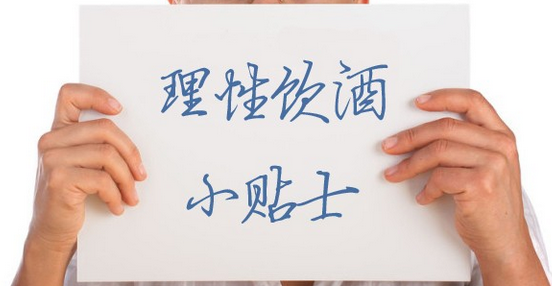 理性饮酒
小贴士